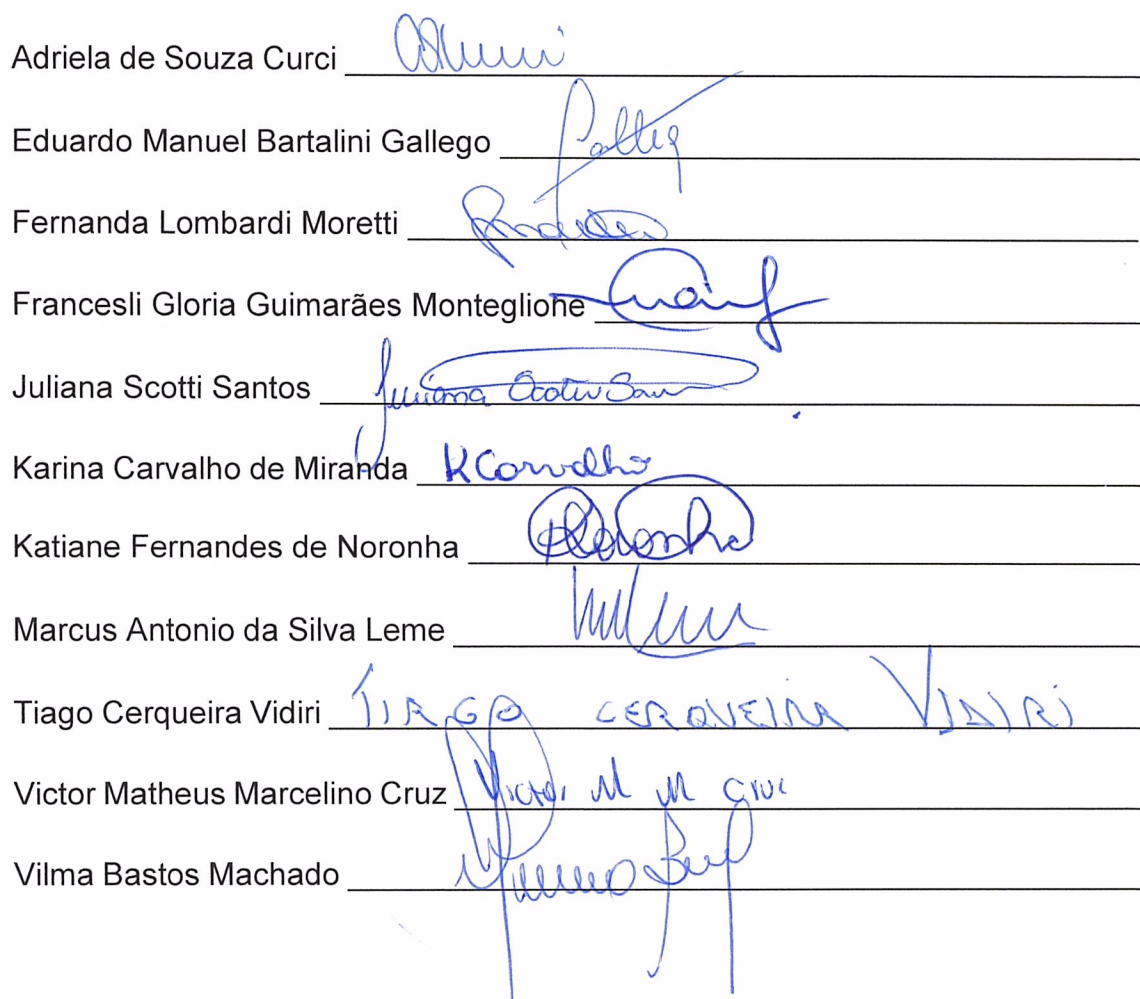 Adriela de Souza Curci
Eduardo Manuel Bartalini Gallego
Fernanda Lombardi Moretti
Francesli Gloria Guimarães Monteglione
Juliana Scotti Santos Juliana Scotti San
Karina Carvalho de Miranda KCarvalho
Katiane Fernandes de Noronha
Marcus Antonio da Silva Leme
Tiago Cerqueira Vidiri TIAGO CERQUEIRA VIDIRI
Victor Matheus Marcelino Cruz Victor M M Cruz
Vilma Bastos Machado